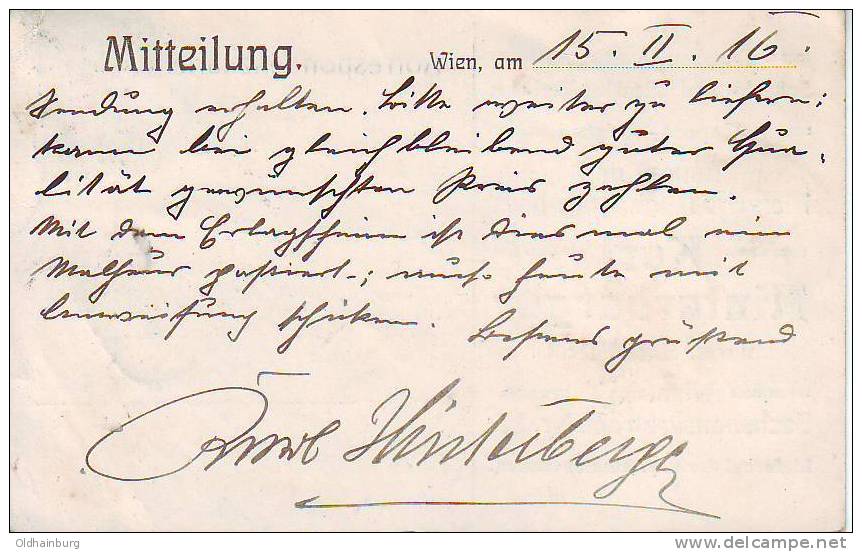 Mitteilung. Wien, am 15. II. 16.
Sendung erhalten. Bitte weiter zu liefern;
kann bei gleichbleibend guter Qua-
lität gewünschten Preis zahlen.
Mit dem Erlagschein ist diesmal ein
Malheur passiert; muß heute mit
Anweisung schicken. Bestens grüßend
Hinterberger
Oldhainburg
delcampe.net